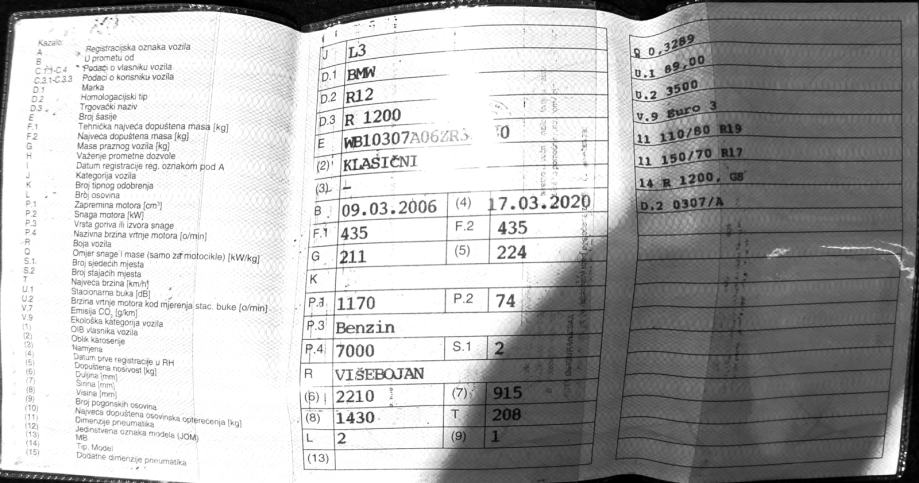 Kazalo:
A Registracijska oznaka vozila
B U prometu od
C.1.1-C.4 Podaci o vlasniku vozila
C.3.1-C.3.3 Podaci o korisniku vozila
D.1 Marka
D.2 Homologacijski tip
D.3 Trgovački naziv
E Broj šasije
F.1 Tehnička najveća dopuštena masa [kg]
F.2 Najveća dopuštena masa [kg]
G Masa praznog vozila [kg]
H Važenje prometne dozvole
I Datum registracije reg. oznakom pod A
J Kategorija vozila
K Broj tipnog odobrenja
L Broj osovina
P.1 Zapremina motora [cm³]
P.2 Snaga motora [kW]
P.3 Vrsta goriva ili izvora snage
P.4 Nazivna brzina vrtnje motora [o/min]
R Boja vozila
Q Omjer snage i mase (samo za motocikle) [kW/kg]
S.1 Broj sjedećih mjesta
S.2 Broj stajaćih mjesta
T Najveća brzina [km/h]
U.1 Stacionarna buka [dB]
U.2 Brzina vrtnje motora kod mjerenja stac. buke [o/min]
V.7 Emisija CO₂ [g/km]
V.9 Ekološka kategorija vozila
(1) OIB vlasnika vozila
(2) Oblik karoserije
(3) Namjena
(4) Datum prve registracije u RH
(5) Dopuštena nosivost [kg]
(6) Duljina [mm]
(7) Širina [mm]
(8) Visina [mm]
(9) Broj pogonskih osovina
(10) Najveća dopuštena osovinska opterećenja [kg]
(11) Dimenzije pneumatika
(12) Jedinstvena oznaka modela (JOM)
(13) MB
(14) Tip, Model
(15) Dodatne dimenzije pneumatika
J L3
D.1 BMW
D.2 R12
D.3 R 1200
E WB10307A06ZR3 0
(2) KLASIČNI
(3) –
B 09.03.2006 (4) 17.03.2020
F.1 435 F.2 435
G 211 (5) 224
K
P.1 1170 P.2 74
P.3 Benzin
P.4 7000 S.1 2
R VIŠEBOJAN
(6) 2210 (7) 915
(8) 1430 T 208
L 2 (9) 1
(13)
Q 0,3289
U.1 89,00
U.2 3500
V.9 Euro 3
11 110/80 R19
11 150/70 R17
14 R 1200, GS
D.2 0307/A